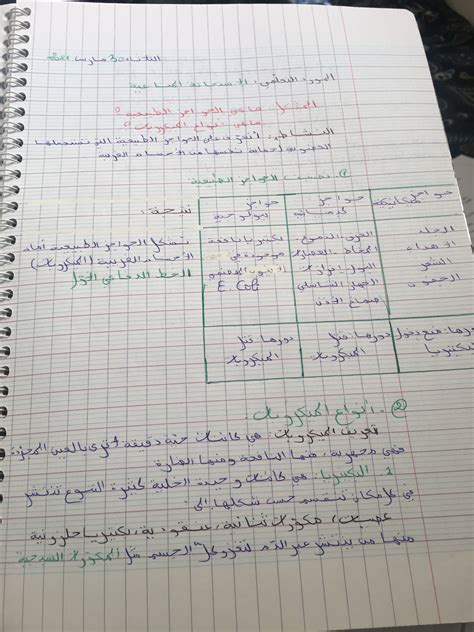 الثلاثاء 30 مارس
المحور الخامس: الاستجابة المناعية
المشكل: ما هي الحواجز الطبيعية؟
ما هي أنواع الميكروبات؟
النشاط: أتعرف على الحواجز الطبيعية التي تستعملها
العضوية لحماية نفسها من الأجسام الغريبة
1) تصنيف الحواجز الطبيعية
حواجز ميكانيكية
حواجز كيميائية
حواجز بيولوجية
نتيجة:
الجلد
الأهداب
الشعر
الجفون
العرق، الدموع
المخاط، العصارة
البول، افرازات
الجهاز التناسلي
صماغ الأذن
بكتيريا نافعة
موجودة في
E. Coli
تشكل الحواجز الطبيعية أمام
الأجسام الغريبة (الميكروبات)
الخط الدفاعي الأول
دورها: منع دخول
البكتيريا
دورها: قتل
الميكروبات
دورها: قتل
الميكروبات
2) أنواع الميكروبات:
تعريف الميكروبات: هي كائنات حية دقيقة لا ترى بالعين المجردة
فهي مجهرية، منها النافعة ومنها الضارة
1 البكتيريا: هي كائنات وحيدة الخلية كثيرة التنوع تنتشر
في كل مكان تنقسم حسب شكلها إلى:
عصيات، مكورات ثنائية، عنقودية، بكتيريا حلزونية
منها من ينتشر عبر الدم لتغزو كل الجسم مثل المكورات السبحية